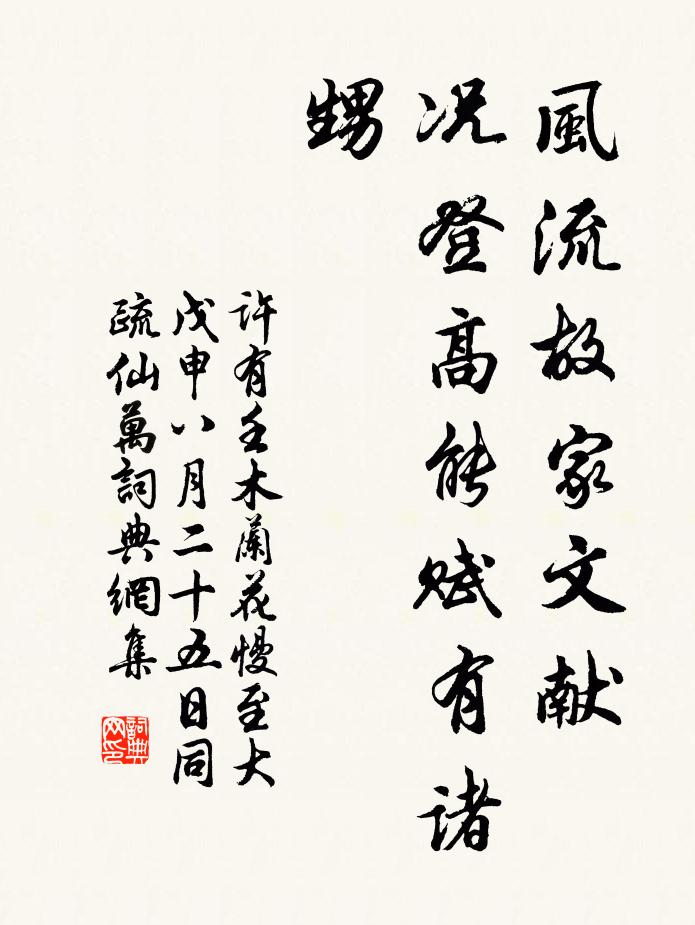 風流故家文献
况登高能赋有诸
甥
許有壬木蘭花慢至大
戊申八月二十五日同
疏仙萬詞典網集
詞典
网印